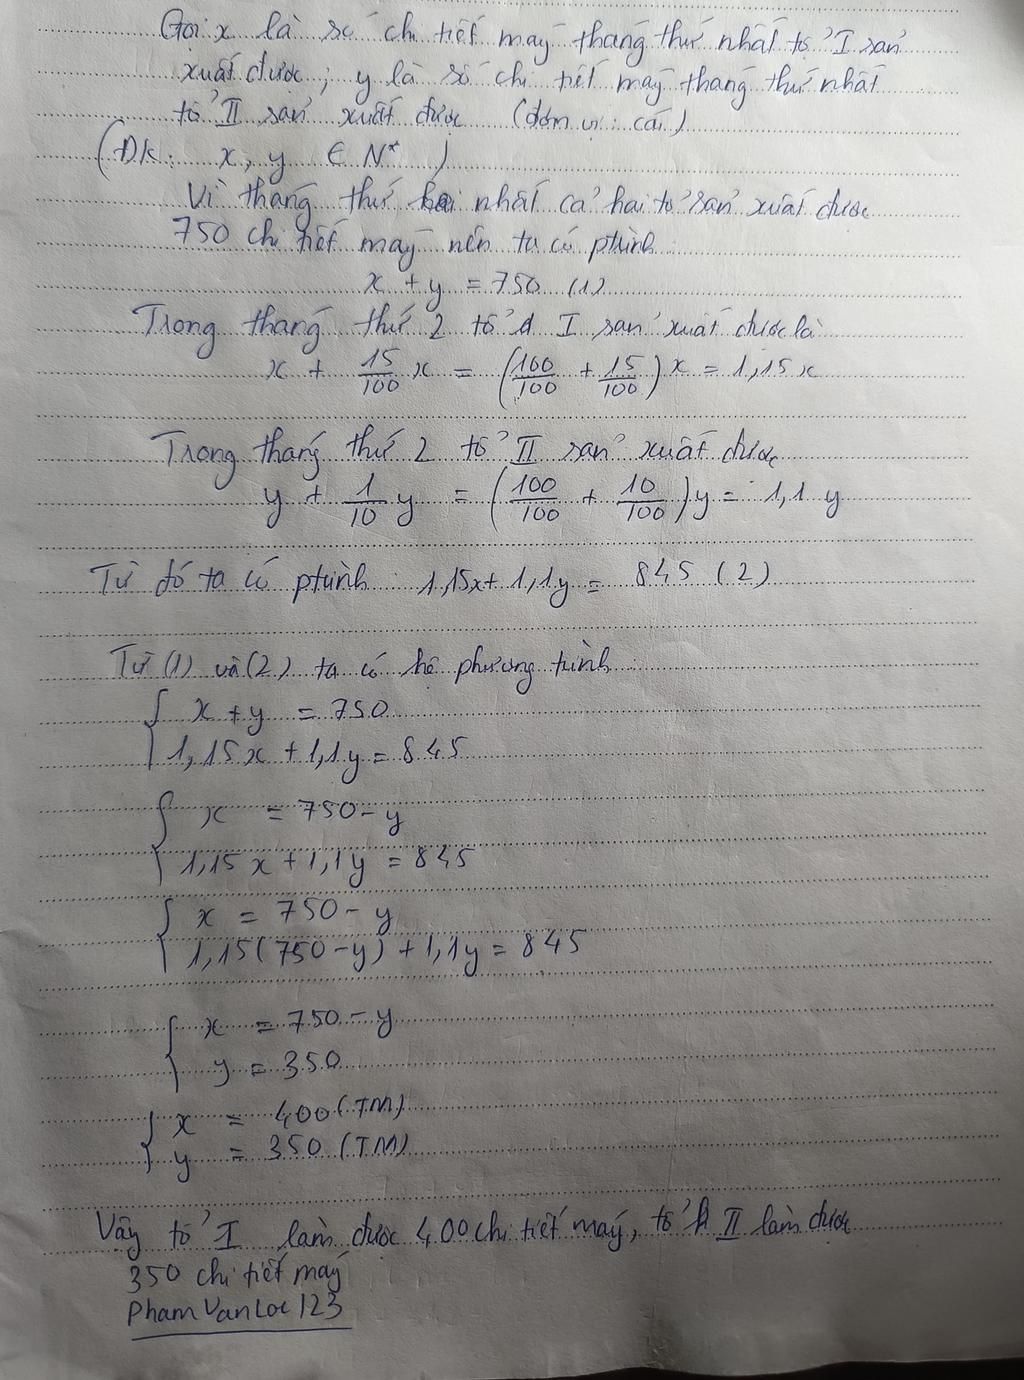 Gọi x là số chi tiết máy tháng thứ nhất tổ I sản
xuất được; y là số chi tiết máy tháng thứ nhất
tổ II sản xuất được (đơn vị: cái)
(ĐK: x, y ∈ N* )
Vì tháng thứ nhất cả hai tổ sản xuất được
750 chi tiết máy nên ta có ptrình:
x + y = 750 (1)
Trong tháng thứ 2 tổ I sản xuất được là
x + 15/100 x = (100/100 + 15/100) x = 1,15x
Trong tháng thứ 2 tổ II sản xuất được
y + 1/10 y = (100/100 + 10/100) y = 1,1 y
Từ đó ta có ptrình: 1,15x + 1,1y = 845 (2)
Từ (1) và (2) ta có hệ phương trình:
{ x + y = 750
1,15x + 1,1y = 845
{ x = 750 - y
1,15x + 1,1y = 845
{ x = 750 - y
1,15(750 - y) + 1,1y = 845
{ x = 750 - y
y = 350
{ x = 400 (TM)
y = 350 (TM)
Vậy tổ I làm được 400 chi tiết máy, tổ II làm được
350 chi tiết máy
Pham Van Loc 123